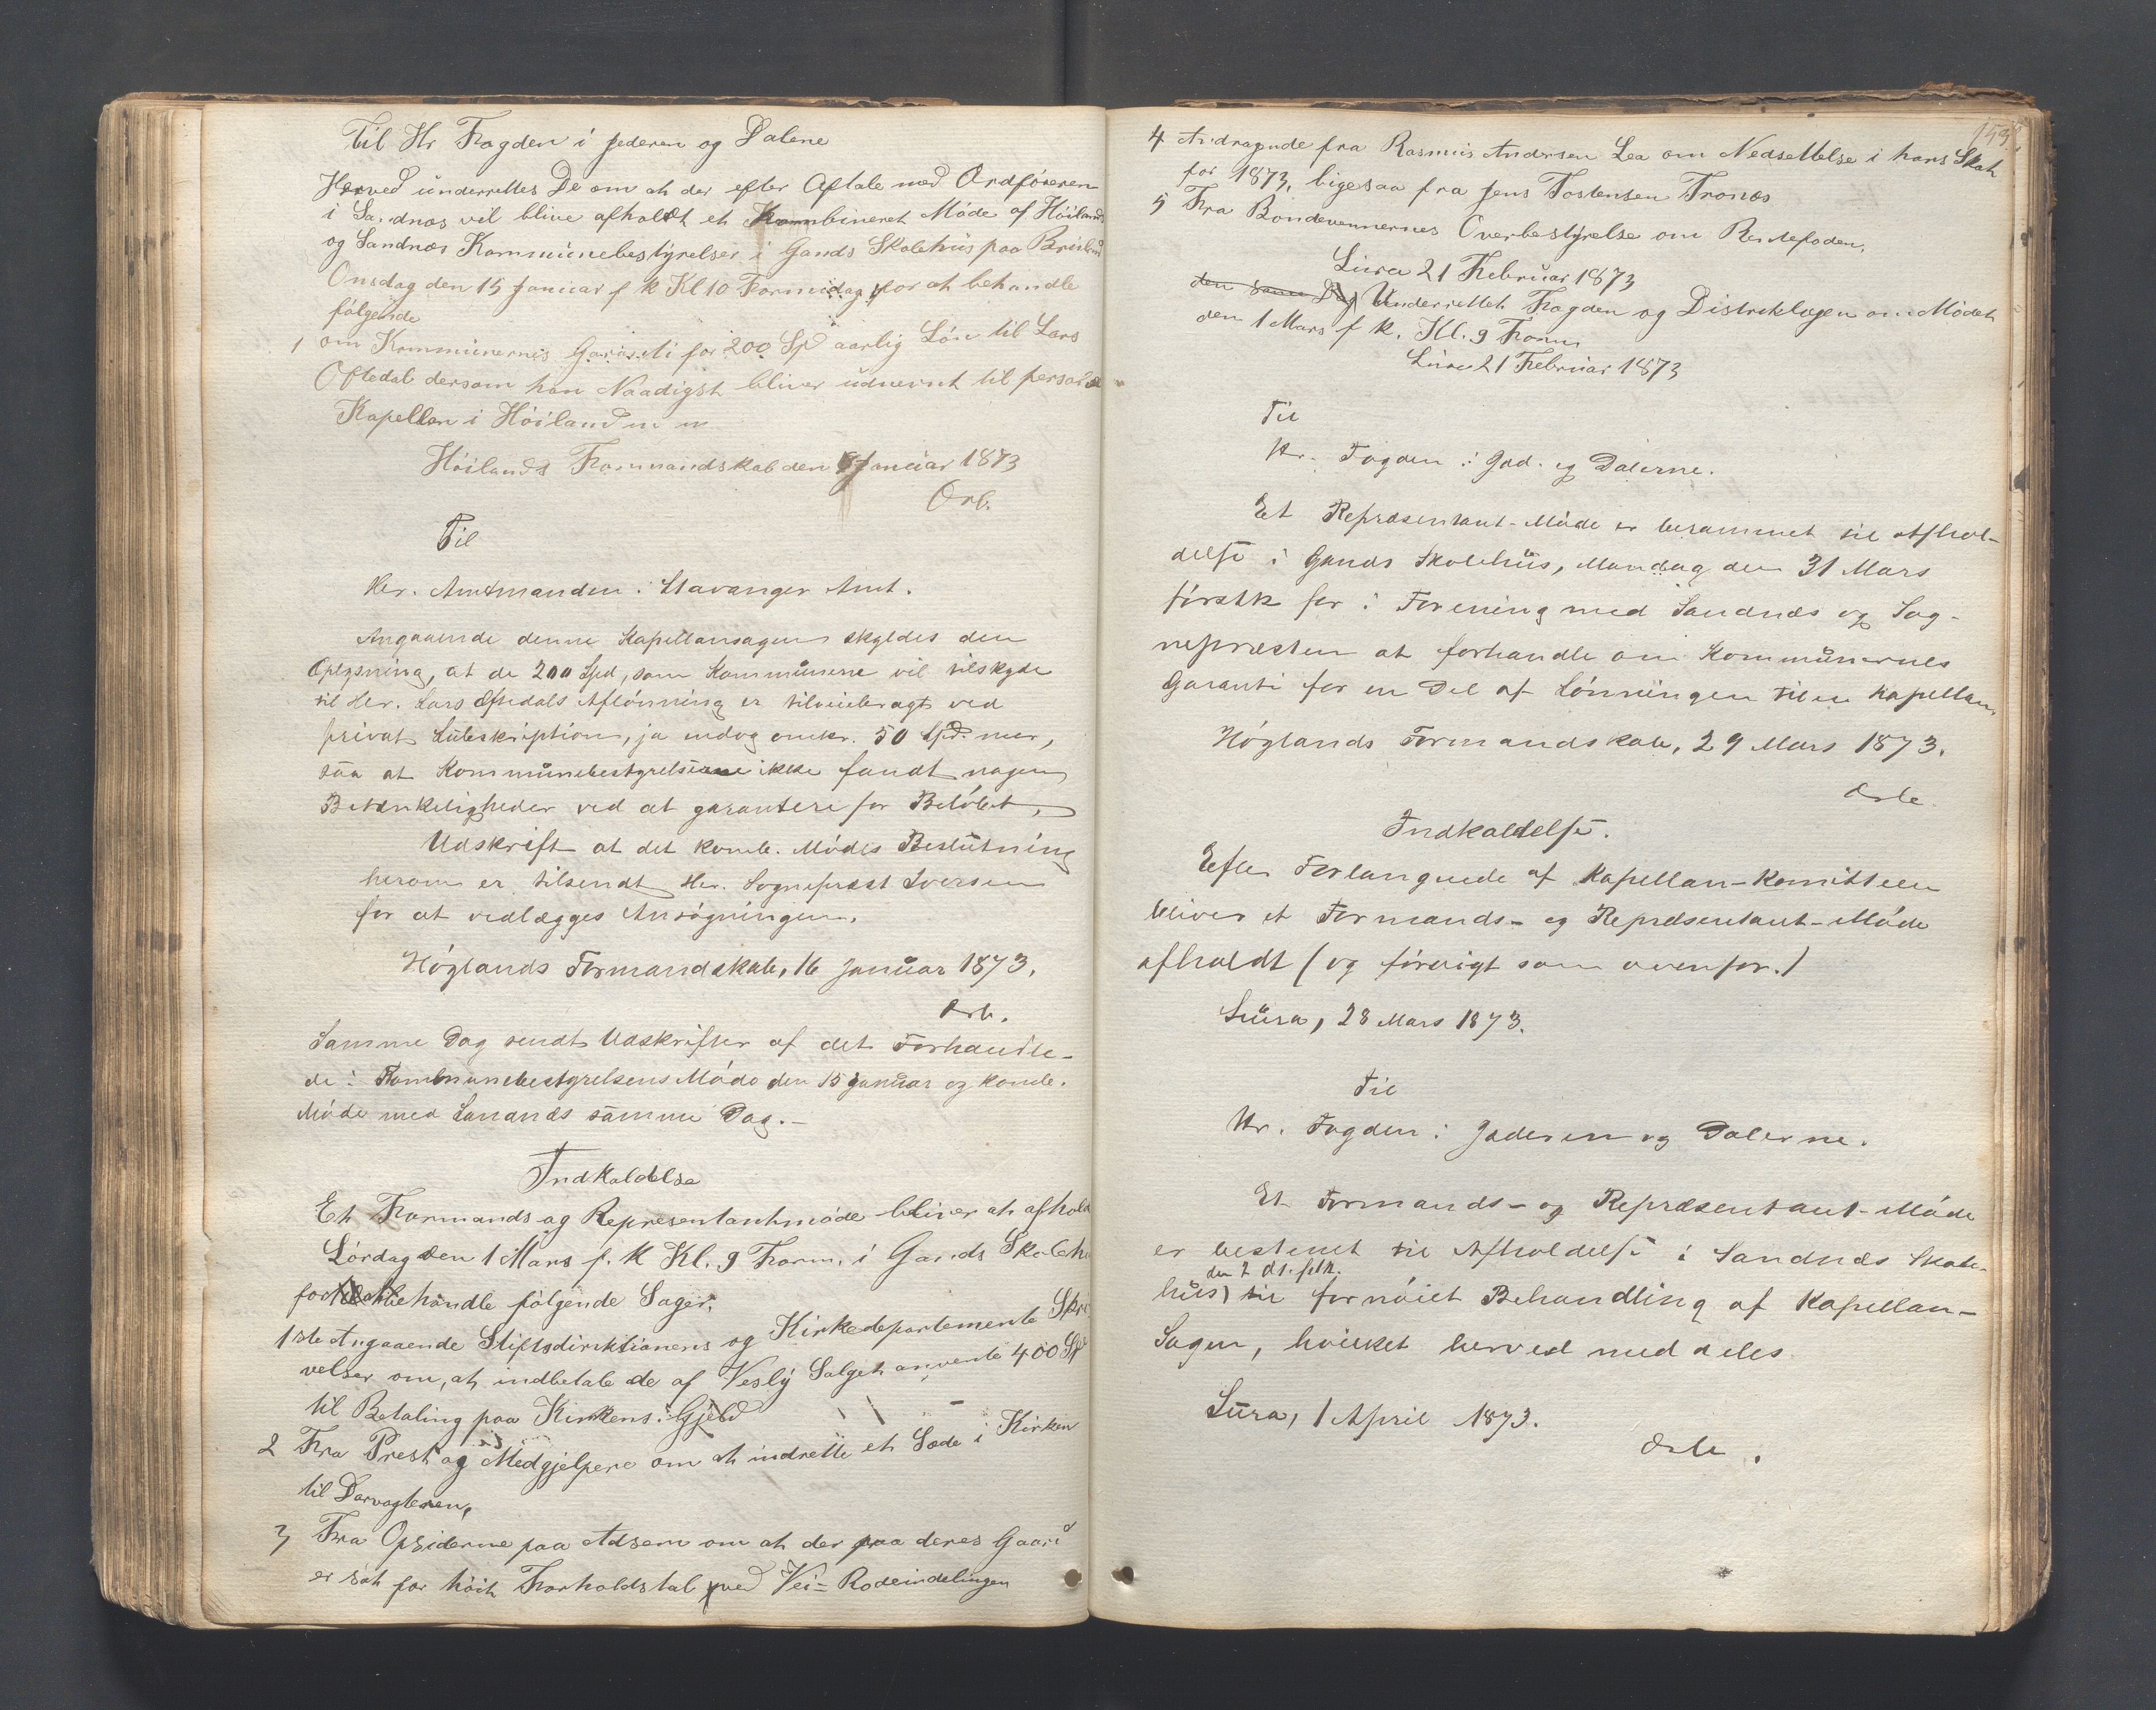 Til Hr Fogden i Jederen og Dalene
Herved underrettes De om at der efter Aftale med Ordføreren
i Sandnæs vil blive afholdt et Kombineret Møde af Høilands
og Sandnæs Kommunebestyrelser i Gands Skolehus paa
Onsdag den 15 Januar f k Kl 10 Formidag for at behandle
følgende
1 om Kommunernis Garanti for 200 Sp aarlig Løn til Lars
Oftedal dersom han Naadigst bliver udnevnt til
Kapellan i Høiland m m
Høilands Formandskab den Januar 1873
Orb.
Til
Hr. Amtmanden i Stavanger Amt.
Angaaende denne Kapellansagen skyldes den
Oplysning, at de 200 Spd, som Kommunerne vil tilskyde
til Hr. Lars Oftedals Aflønning er tilveiebragt ved
privat Subskription, ja endog omkr. 50 Spd. mer,
saa at Kommunebestyrelserne ikke fandt nogen
Betænkeligheder ved at garantere for Beløbet.
Udskrift at det komb. Mødes Beslutning
herom er tilsendt Hr. Sognepræst Iversen
for at vedlægges Ansøgningen.
Høglands Formandskab, 16 Januar 1873.
Orb.
Samme Dag sendt Udskrifter af det Forhandle-
de i Kommunebestyrelsens Møde den 15 Januar og komb.
Møde med Sandnæs samme Dag.-
Indkaldelse
Et Formands og Representantmøde bliver at afhold
Lørdag den 1 Mars f. k Kl. 9 Form. i Gands Skoleh
for at behandle følgende Sager.
1ste Angaaende Stiftsdirektionens og Kirkedepartemente Skri
velser om, at indbetale de af Salget anvente 400 Sp
til Betaling paa Kirkens Gjeld
2 Fra Prest og Medgjelpere om at indrette et Sæde i Kirken
til Dørvogteren,
3 Fra Opsiderne paa Adsem om at der paa deres Gaard
er sat for høit Forholdstal ved Vei= Rodeindelingen
153
4 Andragende fra Rasmus Andersen Lea om Nedsettelse i hans Skat
for 1873, ligesaa fra Jens Tostensen Tronæs
5 Fra Bondevennernes Overbestyrelse om Rentefoden.
Lura 21 Februar 1873
den same Dag Underrettet Fogden og Distriktslægen om Mødet
den 1 Mars f k. Kl. 9 Form
Lura 21 Februar 1873
Til
Hr. Fogden i Jæd. og Dalerne.
Et Repræsentant-Møde er berammet til Afhol-
delse i Gands Skolehus, Mandag den 31 Mars
førstk for i Forening med Sandnæs og Sog-
nepræsten at forhandle om Kommunernes
Garanti for en Del af Lønningen til en Kapellan.
Høglands Formandskab, 29 Mars 1873.
Orb.
Indkaldelse.
Efter Forlangende af Kapellan-Komitteen
bliver et Formands- og Repræsentant-Møde
afholdt (og førvigt som ovenfor.)
Lura, 28 Mars 1873.
Til
Hr. Fogden i Jæderen og Dalerne.
Et Formands- og Repræsentant-Møde
er bestemt til Afholdelse i Sandnæs Skole-
den 2
hus til fornøiet Behandling af Kapellan-
Sagen, hvilket herved meddeles.
Lura, 1 April 1873.
Orb.